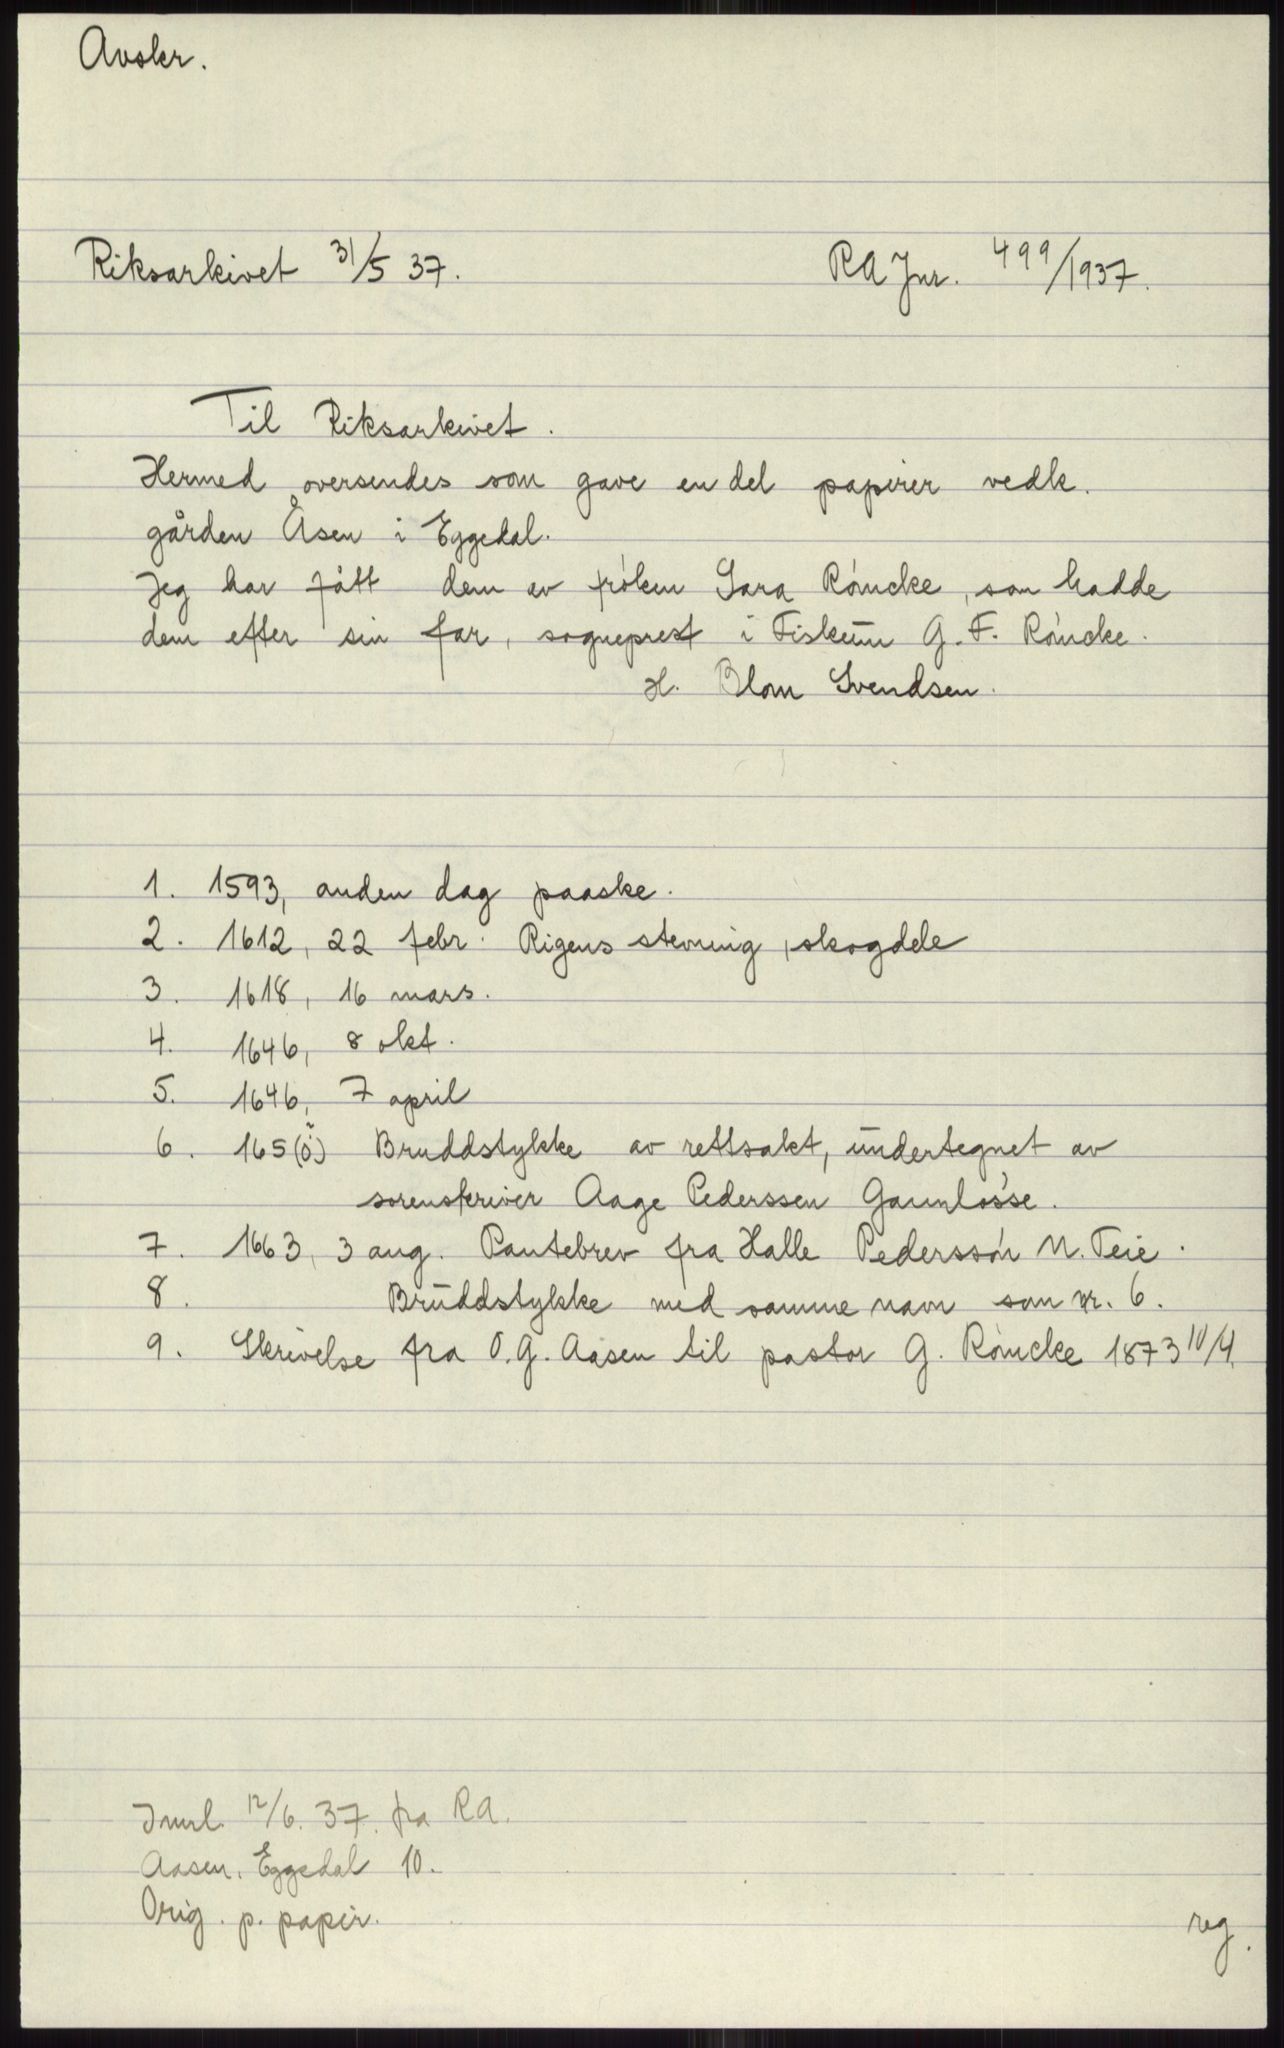 Avskr.
Riksarkivet 31/5 37. RA Jnr. 499/1937.
Til Riksarkivet.
Hermed oversendes som gave en del papirer vedk.
gården Åsen i Eggedal.
Jeg har fått dem av frøken Sara Røncke, som hadde
dem efter sin far, sogneprest i Fiskum G. F. Røncke.
H. Blom Svendsen.
1. 1593, anden dag paaske.
2. 1612, 22 febr. Rigens stevning, skogdele
3. 1618, 16 mars.
4. 1646, 8 okt.
5. 1646, 7 april
6. 165(0?) Bruddstykke av rettsakt, undertegnet av
sorenskriver Aage Pederssen
7. 1663, 3 aug. Pantebrev fra Halle Pederssøn N. Teie.
8. Bruddstykke med samme navn som nr. 6.
9. Skrivelse fra O. G. Aasen til pastor G. Røncke 1873 10/4.
Innl. 12/6. 37. fra RA.
Aasen, Eggedal 10.
Orig. p. papir.
reg.